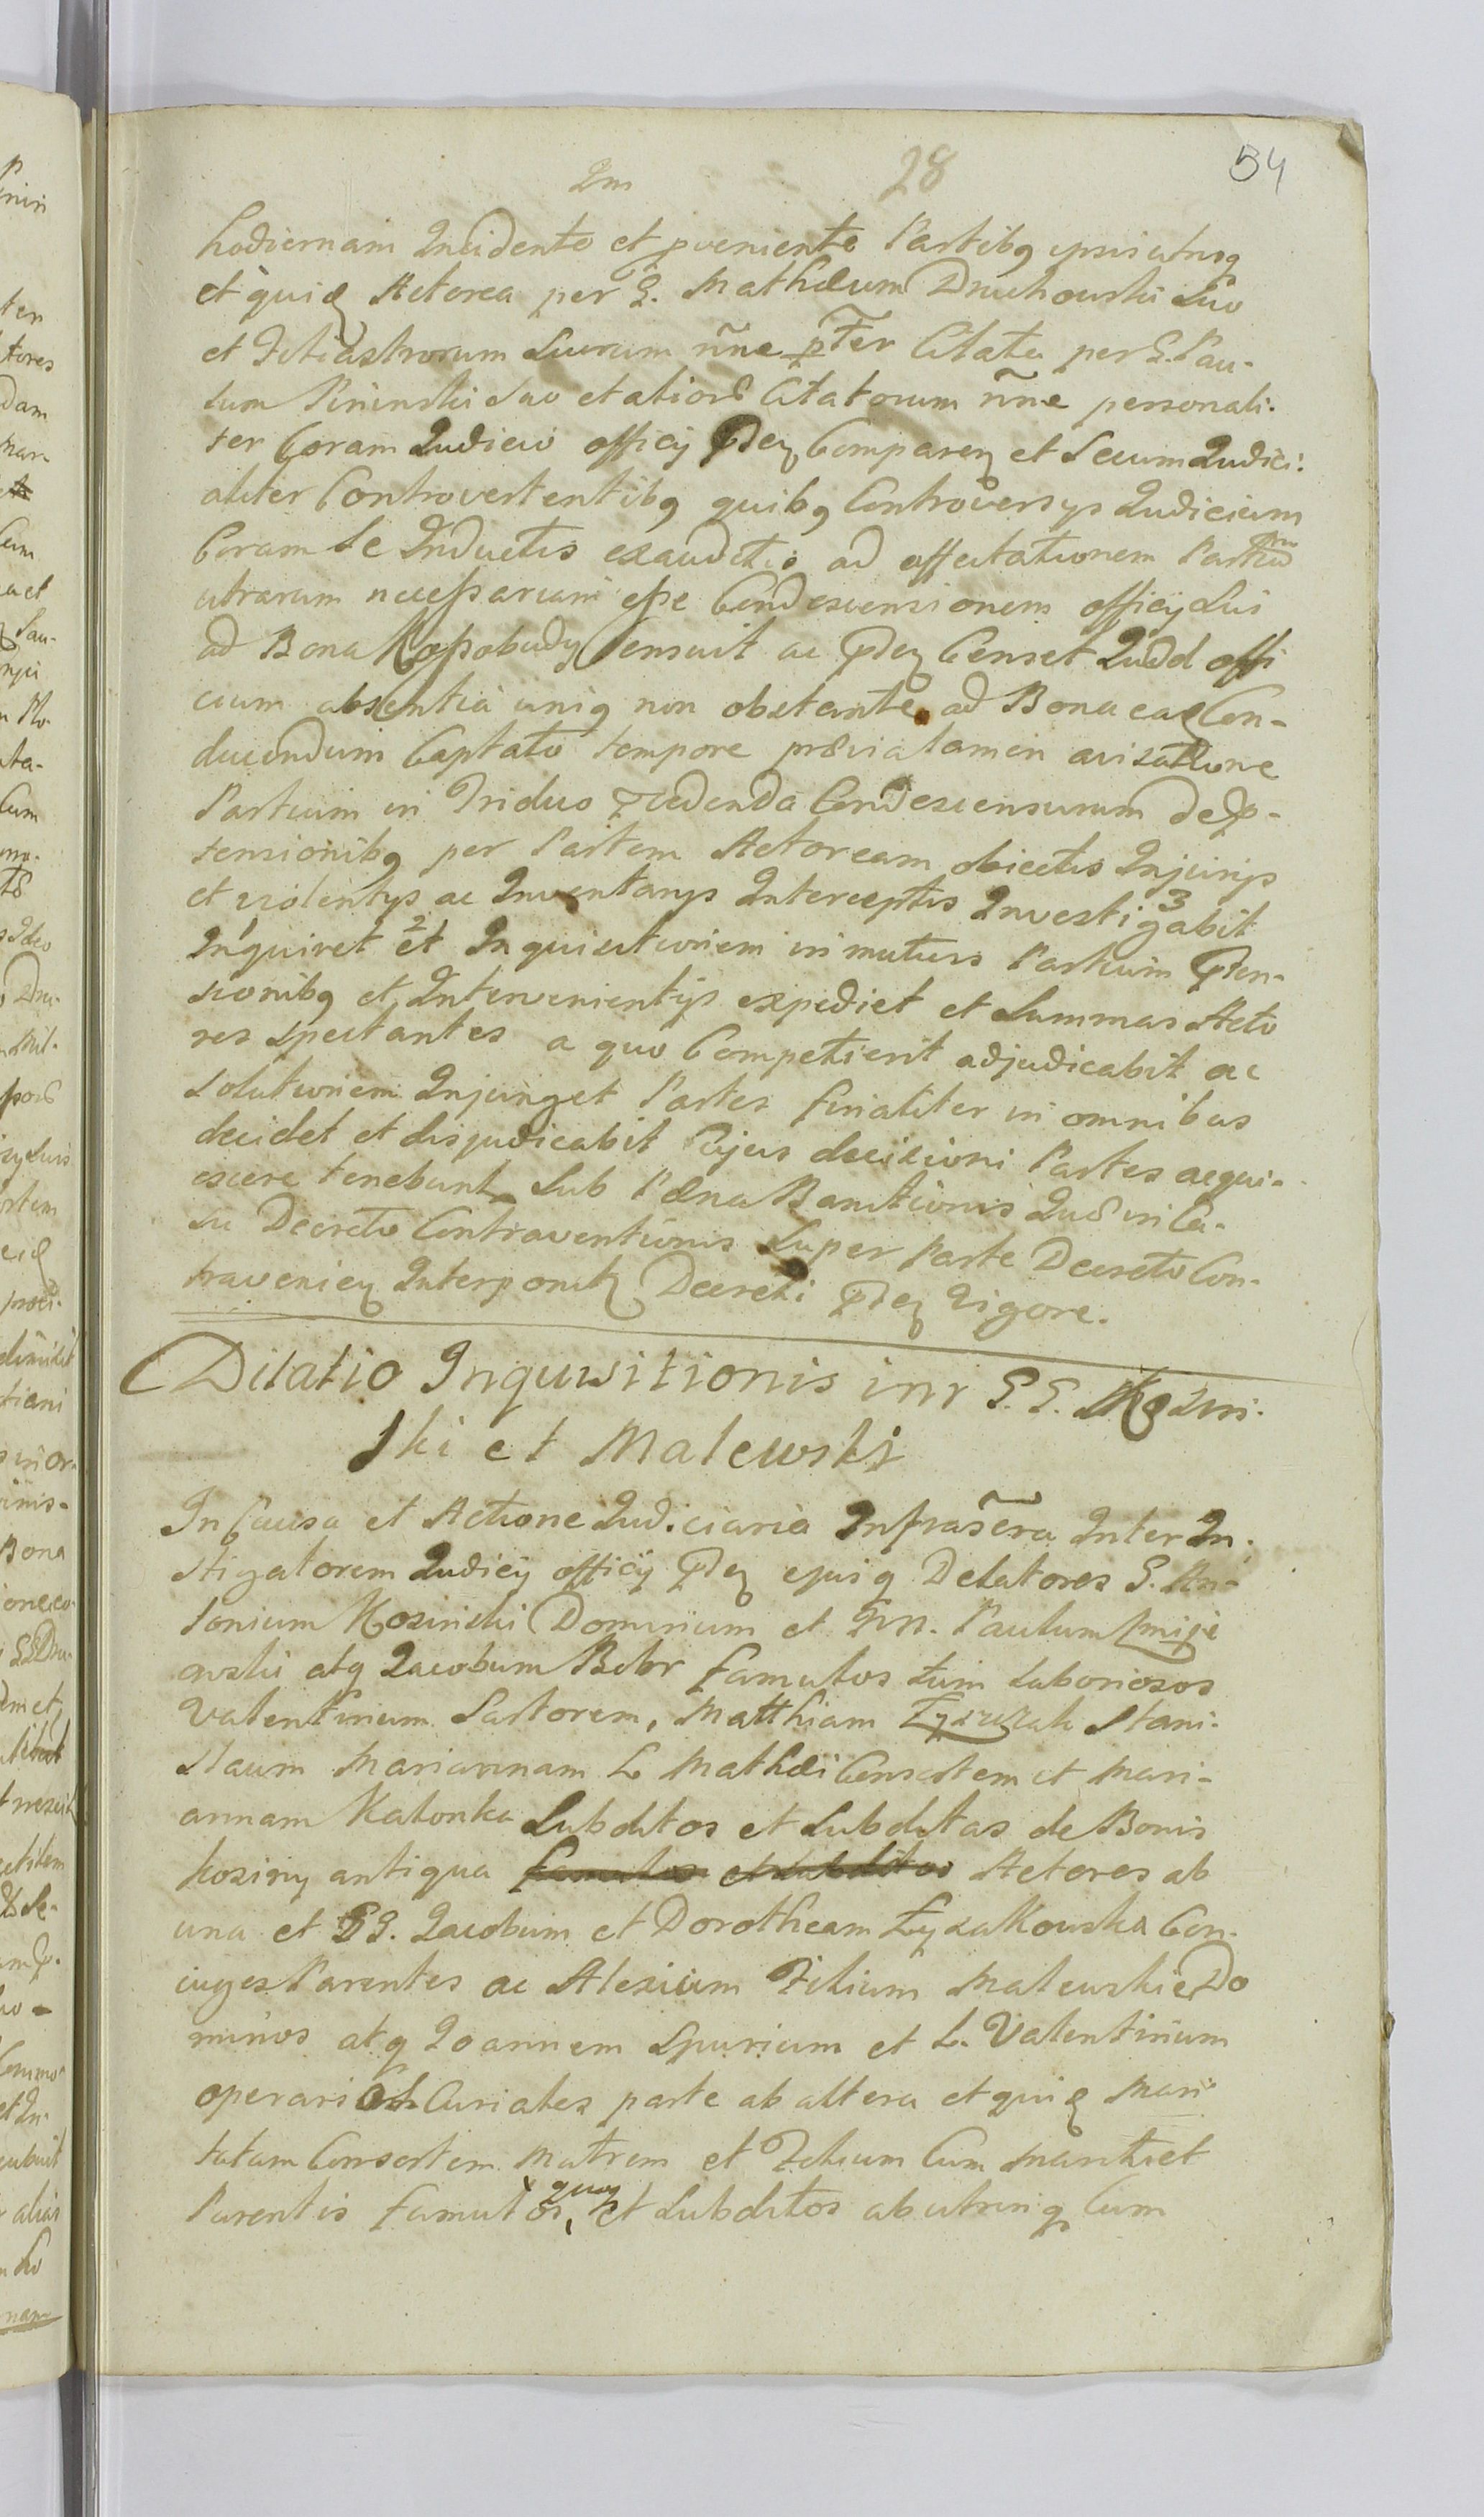 2m 28 54
hodiernam Incidente et pveniente Partibq ipsis utrisq
et quid Actorea per G. Mathæum Druchowski Suo
et Filiastrorum Suorum ñne pter Citata per G. Pau-
lum Pininski Suo et alior Citatorum ñne personali-
ter Coram Judicio officij pñ Comparen et Secum Judici-
aliter Controvertentibq quibq Controversijs Judicium
Coram Se Inductis exauditis ad affectationem Partium
utrarum necessariam esse Condescensionem officij Sui
ad Bona Kossobudy Censuit ac pñ Censet Quod offi
cium absentia uniq non obstante ad Bona ead Con-
ducendum Captato tempore prævia tamen avisatione
Partium in Triduo pcedenda Condescensurum de p-
tensionibq per Partem Actoream obiectis Injurijs
et violentijs ac Inventarijs Interceptis Investigabit 3
Inquiret 1 et 2 Inquisitionem in mutuis Partium pten-
sionibq et Intervenientijs expediet et Summas Acto
res spectantes a quo Competierit adjudicabit ac
Solutionem Injunget Partes finaliter in omnibus
decidet et disjudicabit Cujus decisioni Partes acqui-
escere tenebunt Sub Pæna Banitionis Quæ in Ca-
su Decreto Contraventionis Super parte Decreto Con-
traveniens Interponitr Decreti pñ vigore.
Dilatio Inquisitionis inr G. G. Kosin-
ski et Malewski
In Causa et Actione Judiciaria Infrascra Inter In-
stigatorem Judicij officij pñ ejusq Delatores G. An-
tonium Kosinski Dominum et Paulum
owski atq Jacobum Bebr famulos tum laboriosos
Valentinum Sartorem, Matthiam Stani-
slaum Mariannam L Mathæi Consortem et Mari-
annam Katonka Subditos et Subditas de Bonis
Kosiny antiqua famulos et subditos Actores ab
una et GG. Jacobum et Dorotheam Łyzakowska Con-
iuges Parentes ac Alexium Filium Malewskie Do
minos atq Joannem Spurium et L. Valentinum
operarios Curiales parte ab altera et quid Mari
tatam Consortem Matrem et Filium Cum Mariti et
Parentis famulos, quoq et Subditos ab utrinq Cum